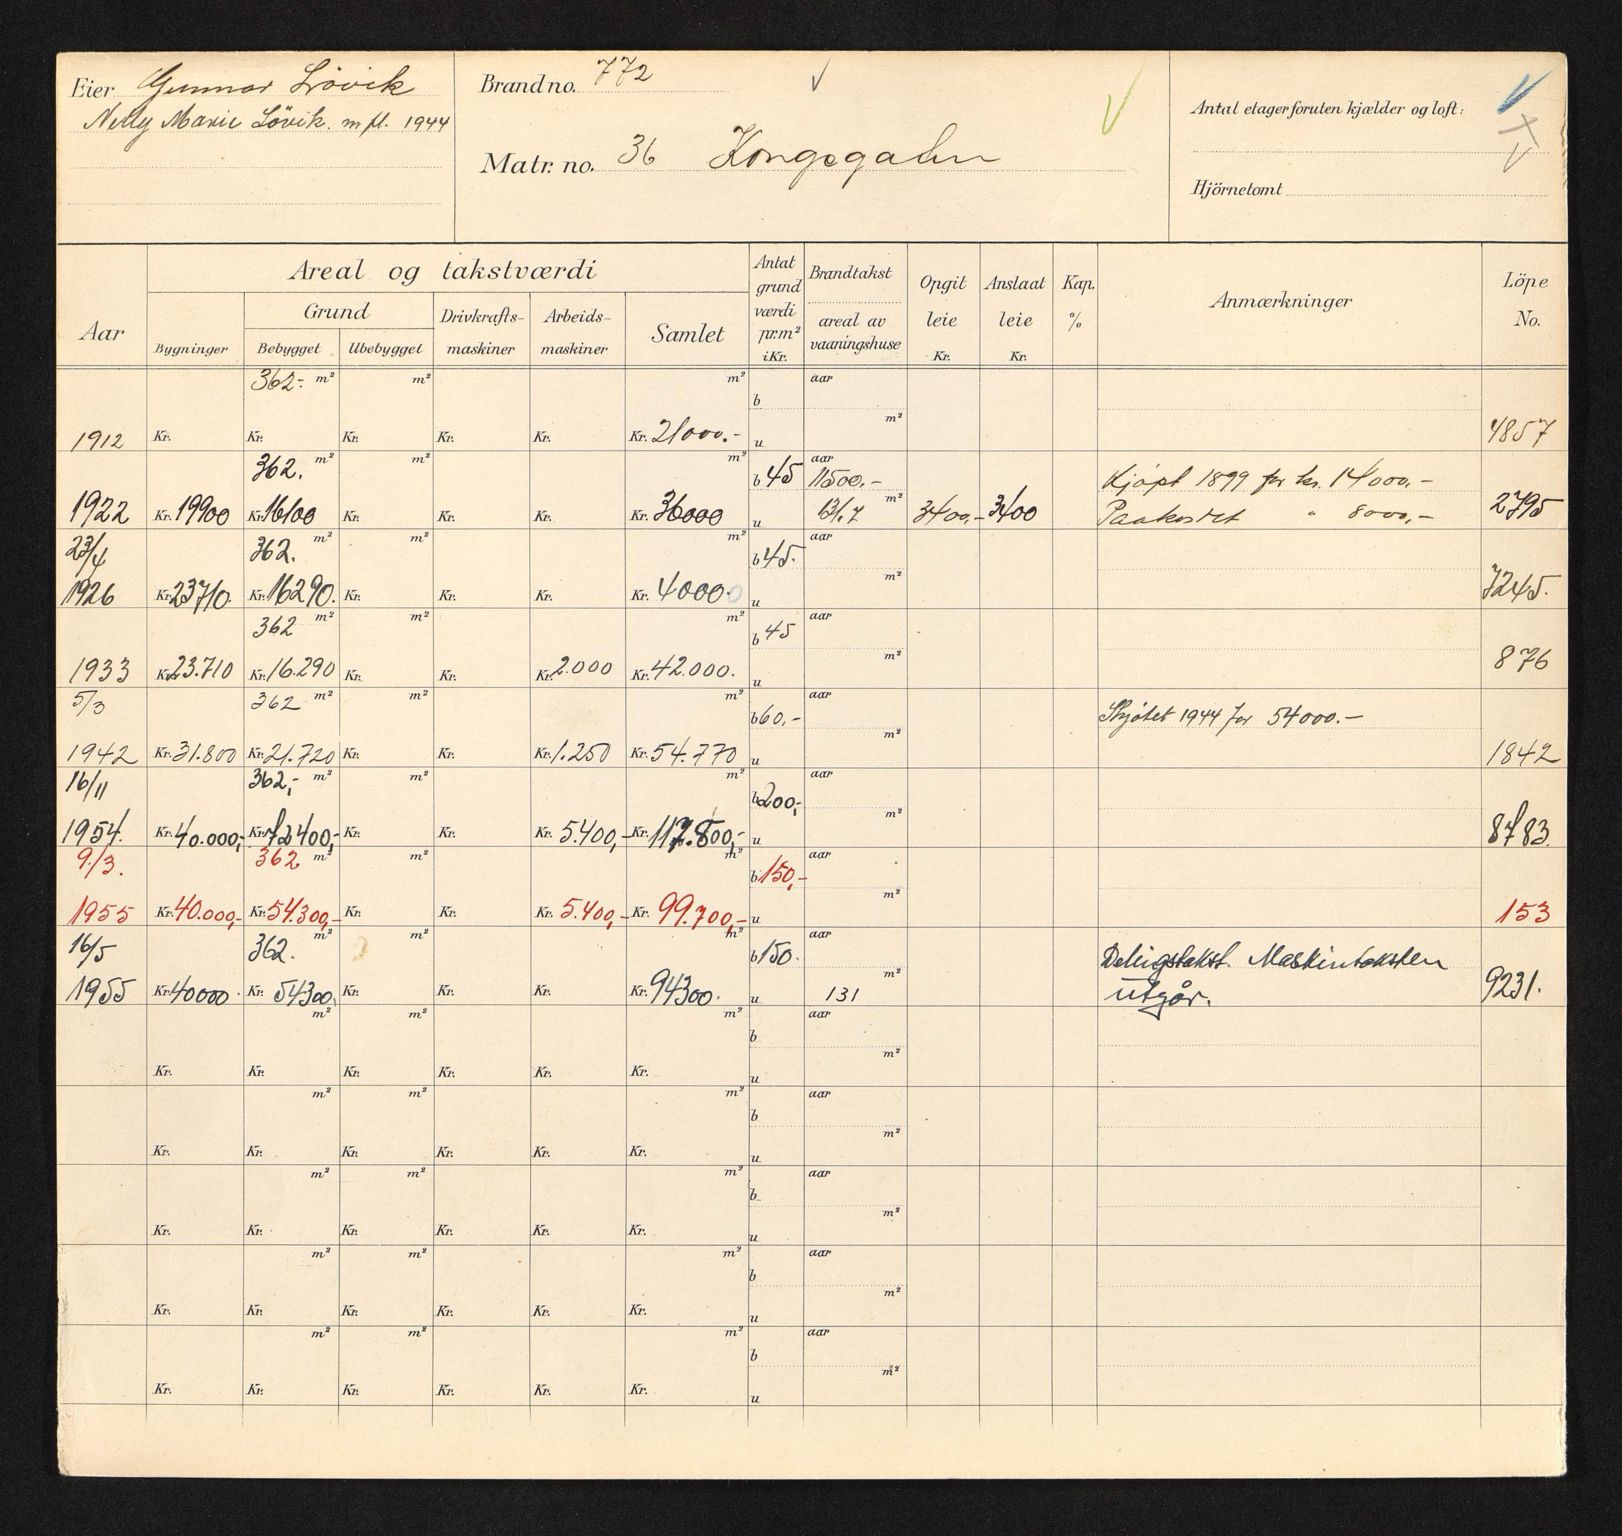 Eier Gunnar Lövik
Nelly Marie Lövik. m fl. 1944
Brand no. 772
Matr. no. 36 Kongsgaten
Antal etager foruten kjælder og loft:
Hjörnetomt
Areal og takstværdi
Aar
Grund
Bygninger
Bebygget
Ubebygget
Drivkrafts-
maskiner
Arbeids-
maskiner
Samlet
Antat
grund
værdi
pr.m²
i Kr.
Brandtakst
areal av
vaaningshuse
Opgit
leie
Kr.
Anslaat
leie
Kr.
Kap.
%
Anmærkninger
Löpe
No.
362.- m² m² m² b aar m²
1912 Kr. Kr. Kr. Kr. Kr. Kr. 21000.- u 4857
362. m² m² m² b 45 aar 11500.- Kjöpt 1899 for kr. 14000.-
1922 Kr. 19900 Kr. 16100 Kr. Kr. Kr. Kr. 36000 u 131.7 m² 3400,- 3400 Paakostet " 8000,- 2795
23/4 362. m² m² m² b 45. aar m²
1926 Kr. 23710. Kr. 16290. Kr. Kr. Kr. Kr. 40000 u 7245.
362 m² m² m² b 45 aar m²
1933 Kr. 23.710 Kr. 16.290 Kr. Kr. Kr. 2.000 Kr. 42.000. u 876
5/3 362 m² m² m² b 60,- aar m² Skjötet 1944 for 54000.-
1942 Kr. 31.800 Kr. 21.720 Kr. Kr. Kr. 1.250 Kr. 54.770 u 1842
16/11 362,- m² m² m² b 200,- aar m²
1954. Kr. 40.000,- Kr. 72400,- Kr. Kr. Kr. 5.400,- Kr. 117.800,- u 8783.
9/3. 362 m² m² m² b 150,- aar m²
1955 Kr. 40.000,- Kr. 54.300,- Kr. Kr. Kr. 5.400,- Kr. 99.700,- u 153
16/5 362. m² m² m² b 150. aar m² Delingstakst. Maskintaksten
1955 Kr. 40000. Kr. 54300. Kr. Kr. Kr. Kr. 94300. u 131 utgår. 9231.
m² m² m² b aar m²
Kr. Kr. Kr. Kr. Kr. Kr. u
m² m² m² b aar m²
Kr. Kr. Kr. Kr. Kr. Kr. u
m² m² m² b aar m²
Kr. Kr. Kr. Kr. Kr. Kr. u
m² m² m² b aar m²
Kr. Kr. Kr. Kr. Kr. Kr. u
m² m² m² b aar m²
Kr. Kr. Kr. Kr. Kr. Kr. u